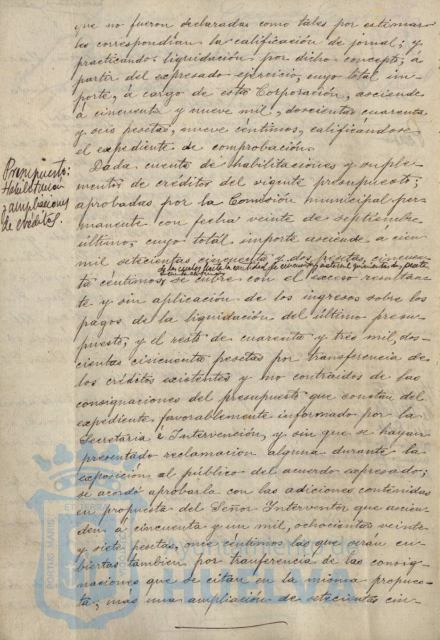 que no fueron declaradas como tales por estimar
les correspondían la calificación de jornal; y
practicando liquidación por dicho concepto, a
partir del expresado ejercicio, cuyo total im-
porte, á cargo de esta Corporación, asciende
á cincuenta y nueve mil, doscientas cuarenta
y seis pesetas, nueve céntimos, calificandose
el expediente de comprobación.
Presupuesto:
Habilitación
y ampliaciones
de créditos.
Dada cuenta de habilitaciones y suple-
mentos de créditos del vigente presupuesto;
aprobadas por la Comisión municipal per-
manente con fecha veinte de septiembre
último, cuyo total importe asciende á cien
mil setecientas cincuenta y dos pesetas cincuen-
de las cuales hasta la cantidad de cincuenta y siete mil quinientas dos pesetas
ta céntimos, se cubre con el exceso resultan-
te y sin aplicación de los ingresos sobre los
pagos de la liquidación del último presu-
puesto; y el resto de cuarenta y tres mil, dos-
cientas cincuenta pesetas por transferencia de
los créditos existentes y no contraidos de las
consignaciones del presupuesto que constan del
expediente, favorablemente informado por la
Secretaria é Intervención, y sin que se hayan
presentado reclamación alguna durante la
exposición al público del acuerdo expresado;
se acordó aprobarla con las adiciones contenidas
en propuesta del Señor Interventor que ascien-
den á cincuenta y un mil, ochocientas veinte
y siete pesetas, once céntimos las que serán cu-
biertas tambien por tranferencia de las consig-
naciones que se citan en la misma propues-
ta, más una ampliación de setecientas cin-